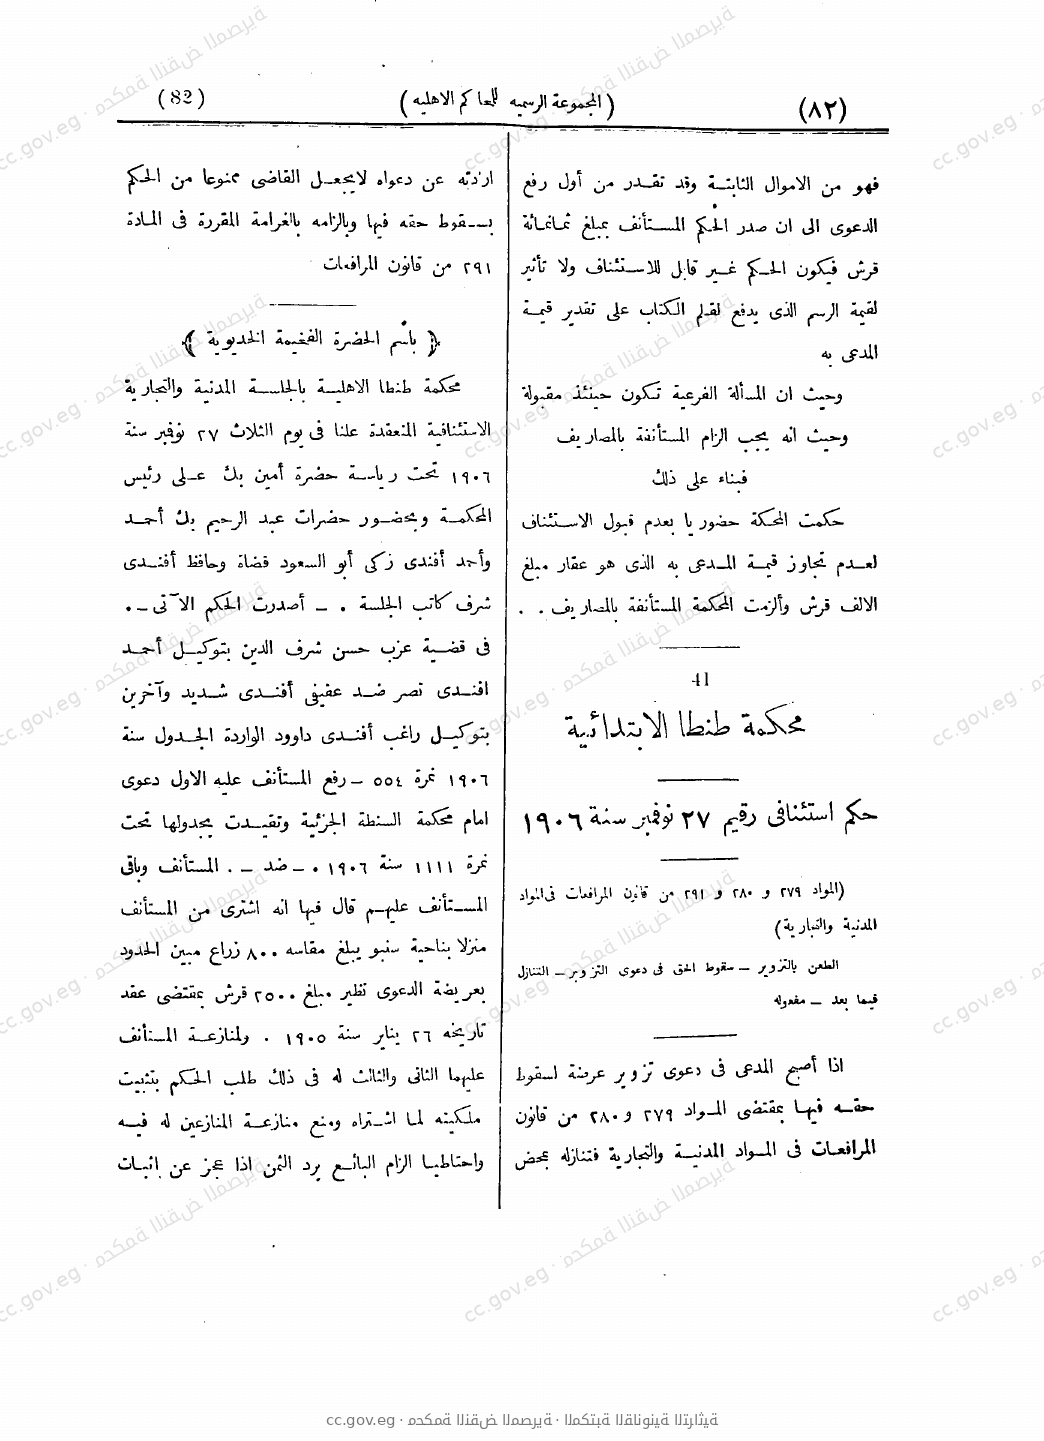 (٨٢)
(المجموعة الرسمية للمحاكم الاهلية)
(82)
فهو من الاموال الثابتة وقد تقدر من أول رفع
الدعوى الى ان صدر الحكم المستأنف بمبلغ ثمانمائة
قرش فيكون الحكم غير قابل للاستئناف ولا تأثير
لقيمة الرسم الذى يدفع لقلم الكتاب على تقدير قيمة
المدعى به
وحيث ان المسألة الفرعية تكون حينئذ مقبولة
وحيث انه يجب الزام المستأنفة بالمصاريف
فبناء على ذلك
حكمت المحكمة حضوريا بعدم قبول الاستئناف
لعدم تجاوز قيمة المدعى به الذى هو عقار مبلغ
الالف قرش وألزمت المحكمة المستأنفة بالمصاريف . .
41
محكمة طنطا الابتدائية
حكم استئنافى رقيم ٢٧ نوفمبر سنة ١٩٠٦
(المواد ٢٧٩ و ٢٨٠ و ٢٩١ من قانون المرافعات فى المواد
المدنية والتجارية)
الطعن بالتزوير – سقوط الحق فى دعوى التزوير – التنازل
فيما بعد – مفعوله
اذا أصبح المدعى فى دعوى تزوير عرضة لسقوط
حقه فيها بمقتضى المواد ٢٧٩ و ٢٨٠ من قانون
المرافعات فى المواد المدنية والتجارية فتنازله بمحض
ارادته عن دعواه لايجعل القاضى ممنوعا من الحكم
بسقوط حقه فيها وبالزامه بالغرامة المقررة فى المادة
٢٩١ من قانون المرافعات
﴿ بأسم الحضرة الفخيمة الخديوية ﴾
محكمة طنطا الاهلية بالجلسة المدنية والتجارية
الاستئنافية المنعقدة علنا فى يوم الثلاث ٢٧ نوفمبر سنة
١٩٠٦ تحت رياسة حضرة أمين بك على رئيس
المحكمة وبحضور حضرات عبد الرحيم بك أحمد
وأحمد أفندى زكى أبو السعود قضاة وحافظ أفندى
شرف كاتب الجلسة . – أصدرت الحكم الآتى –.
فى قضية عزب حسن شرف الدين بتوكيل أحمد
افندى نصر ضد عفيفى أفندى شديد وآخرين
بتوكيل راغب أفندى داوود الواردة الجدول سنة
١٩٠٦ نمرة ٥٥٤ – رفع المستأنف عليه الاول دعوى
امام محكمة السنطة الجزئية وتقيدت بجدولها تحت
نمرة ١١١١ سنة ١٩٠٦ . – ضد – . المستأنف وباقى
المستأنف عليهم قال فيها انه اشترى من المستأنف
منزلا بناحية سنبو يبلغ مقاسه ٨٠٠ زراع مبين الحدود
بعريضة الدعوى نظير مبلغ ٢٥٠٠ قرش بمقتضى عقد
تاريخه ٢٦ يناير سنة ١٩٠٥ . ولمنازعة المستأنف
عليهما الثانى والثالث له فى ذلك طلب الحكم بتثبيت
ملكيته لما اشتراه ومنع منازعة المنازعين له فيه
واحتاطيا الزام البائع برد الثمن اذا عجز عن اثبات
cc.gov.eg · محكمة النقض المصرية · المكتبة القانونية التراثية